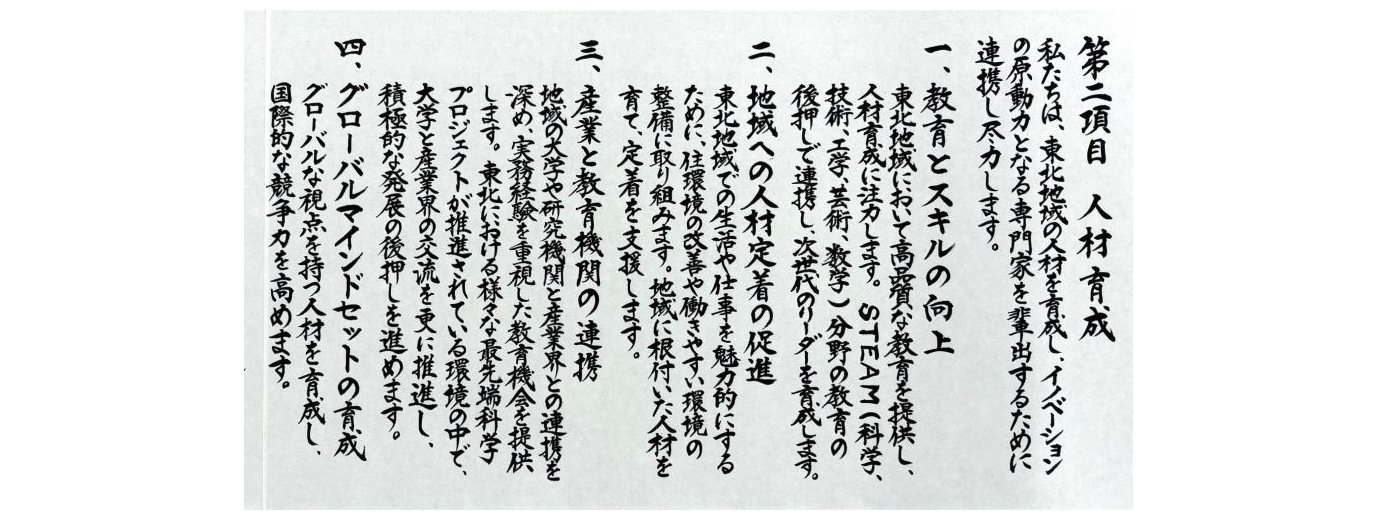 第二項目 人材育成
私たちは、東北地域の人材を育成し、イノベーション
の原動力となる専門家を輩出するために
連携し尽力します。
一、教育とスキルの向上
東北地域において高品質な教育を提供し、
人材育成に注力します。STEAM(科学、
技術、工学、芸術、数学)分野の教育の
後押しで連携し、次世代のリーダーを育成します。
二、地域への人材定着の促進
東北地域での生活や仕事を魅力的にする
ために、住環境の改善や働きやすい環境の
整備に取り組みます。地域に根付いた人材を
育て、定着を支援します。
三、産業と教育機関の連携
地域の大学や研究機関と産業界との連携を
深め、実務経験を重視した教育機会を提供
します。東北における様々な最先端科学
プロジェクトが推進されている環境の中で、
大学と産業界の交流を更に推進し、
積極的な発展の後押しを進めます。
四、グローバルマインドセットの育成
グローバルな視点を持つ人材を育成し、
国際的な競争力を高めます。